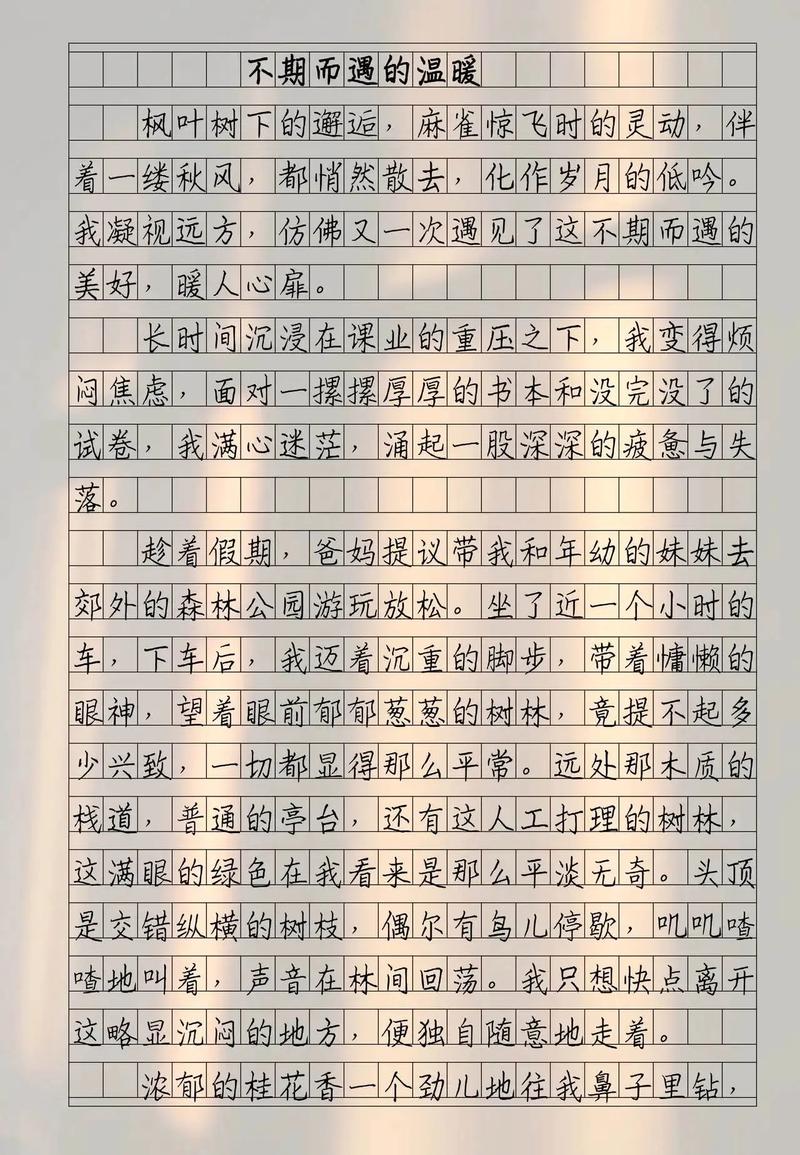 不期而遇的温暖
枫叶树下的邂逅，麻雀惊飞时的灵动，伴
着一缕秋风，都悄然散去，化作岁月的低吟。
我凝视远方，仿佛又一次遇见了这不期而遇的
美好，暖人心扉。
长时间沉浸在课业的重压之下，我变得烦
闷焦虑，面对一摞摞厚厚的书本和没完没了的
试卷，我满心迷茫，涌起一股深深的疲惫与失
落。
趁着假期，爸妈提议带我和年幼的妹妹去
郊外的森林公园游玩放松。坐了近一个小时的
车，下车后，我迈着沉重的脚步，带着慵懒的
眼神，望着眼前郁郁葱葱的树林，竟提不起多
少兴致，一切都显得那么平常。远处那木质的
栈道，普通的亭台，还有这人工打理的树林，
这满眼的绿色在我看来是那么平淡无奇。头顶
是交错纵横的树枝，偶尔有鸟儿停歇，叽叽喳
喳地叫着，声音在林间回荡。我只想快点离开
这略显沉闷的地方，便独自随意地走着。
浓郁的桂花香一个劲儿地往我鼻子里钻，